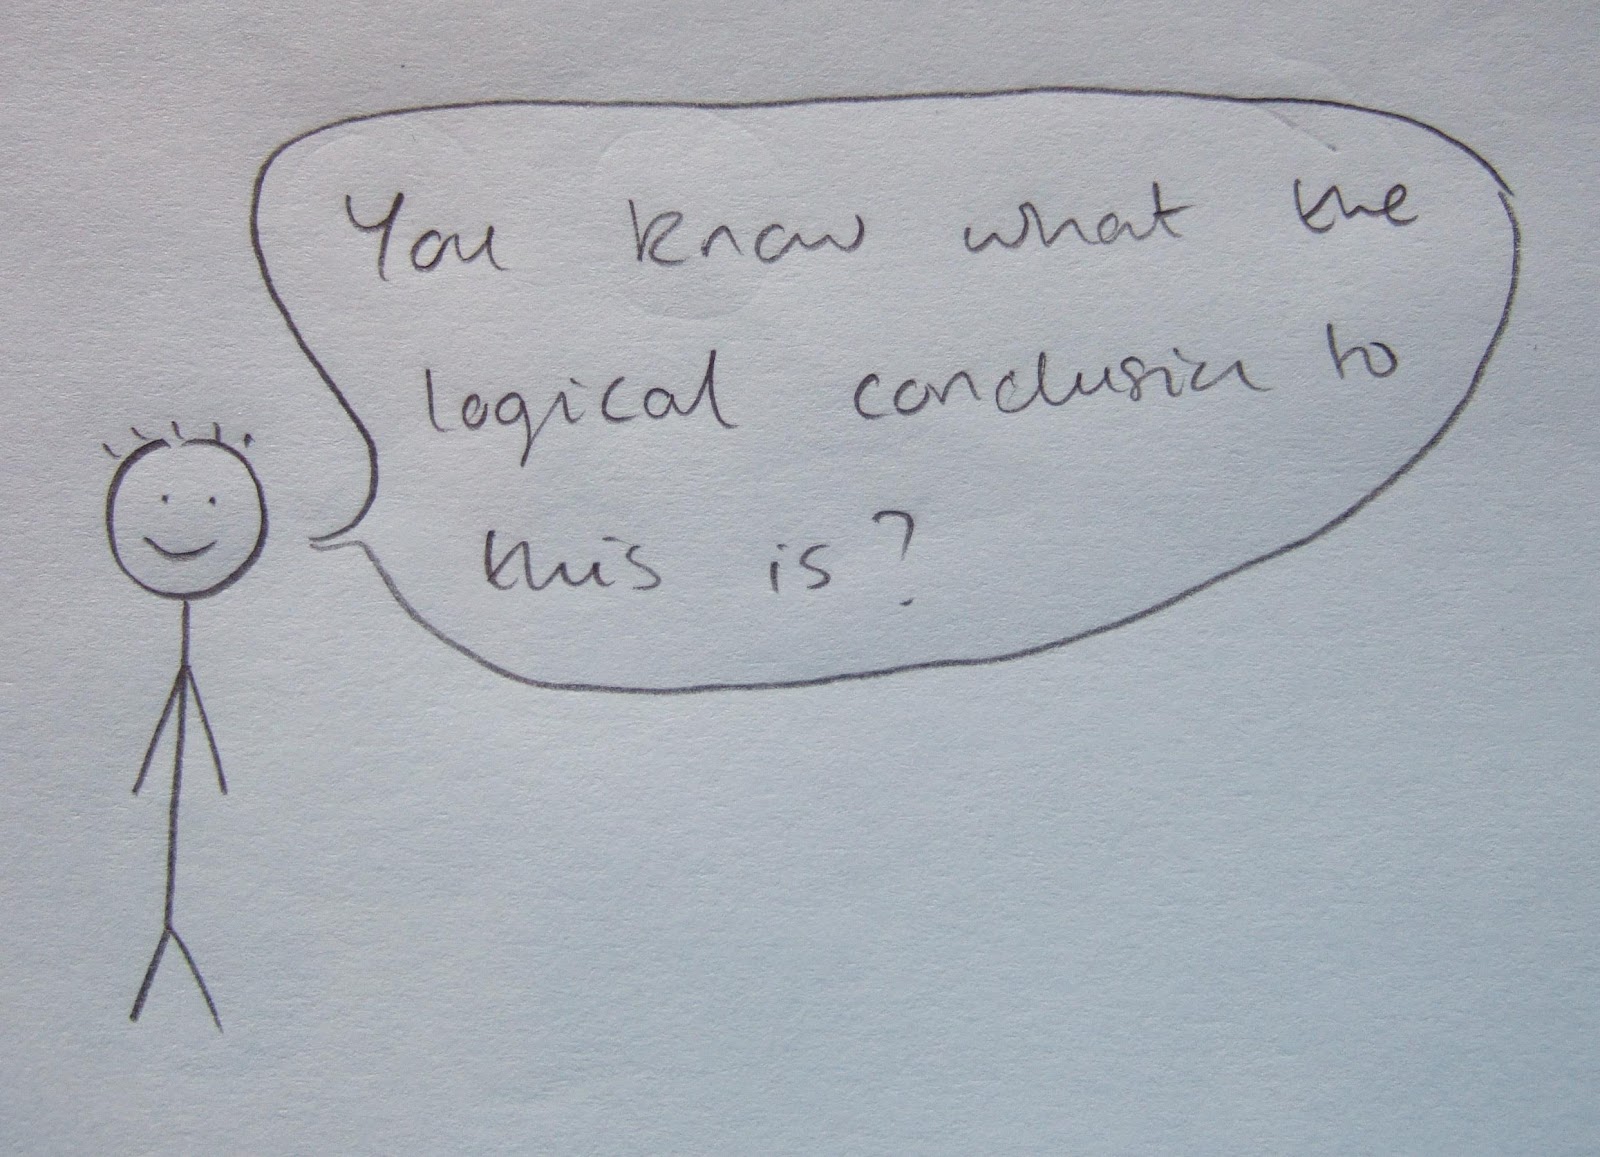 You know what the
logical conclusion to
this is?